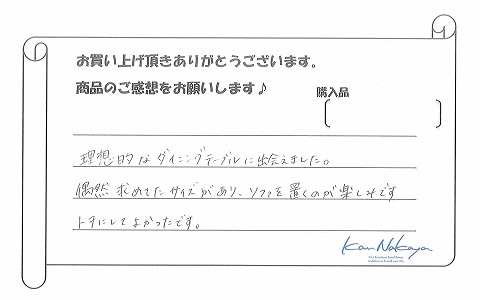 お買い上げ頂きありがとうございます。
商品のご感想をお願いします♪
購入品
理想的なダイニングテーブルに出会えました。
偶然求めてたサイズがあり、ソファを置くのが楽しみです
してよかったです。
Kan Nakaya